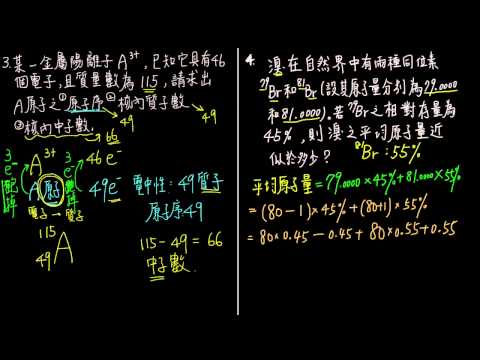 3.某一金屬陽離子A³⁺,已知它具有46
個電子,且質量數為115,請求出
A原子之①原子序②核內質子數
③核內中子數.
49
49
66
3e⁻
跑掉
A³⁺
A原子
3e⁻
46e⁻
49e⁻
電子=質子
115
49 A
電中性:49質子
原子序49
115-49=66
中子數.
4.溴在自然界中有兩種同位素
⁷⁹Br和⁸¹Br(設其原子量分別為79.0000
和81.0000).若⁷⁹Br之相對存量為
45%,則溴之平均原子量近
似於多少?
⁸¹Br:55%
平均原子量=79.0000×45%+81.0000×55%
=(80-1)×45%+(80+1)×55%
=80×0.45-0.45+80×0.55+0.55